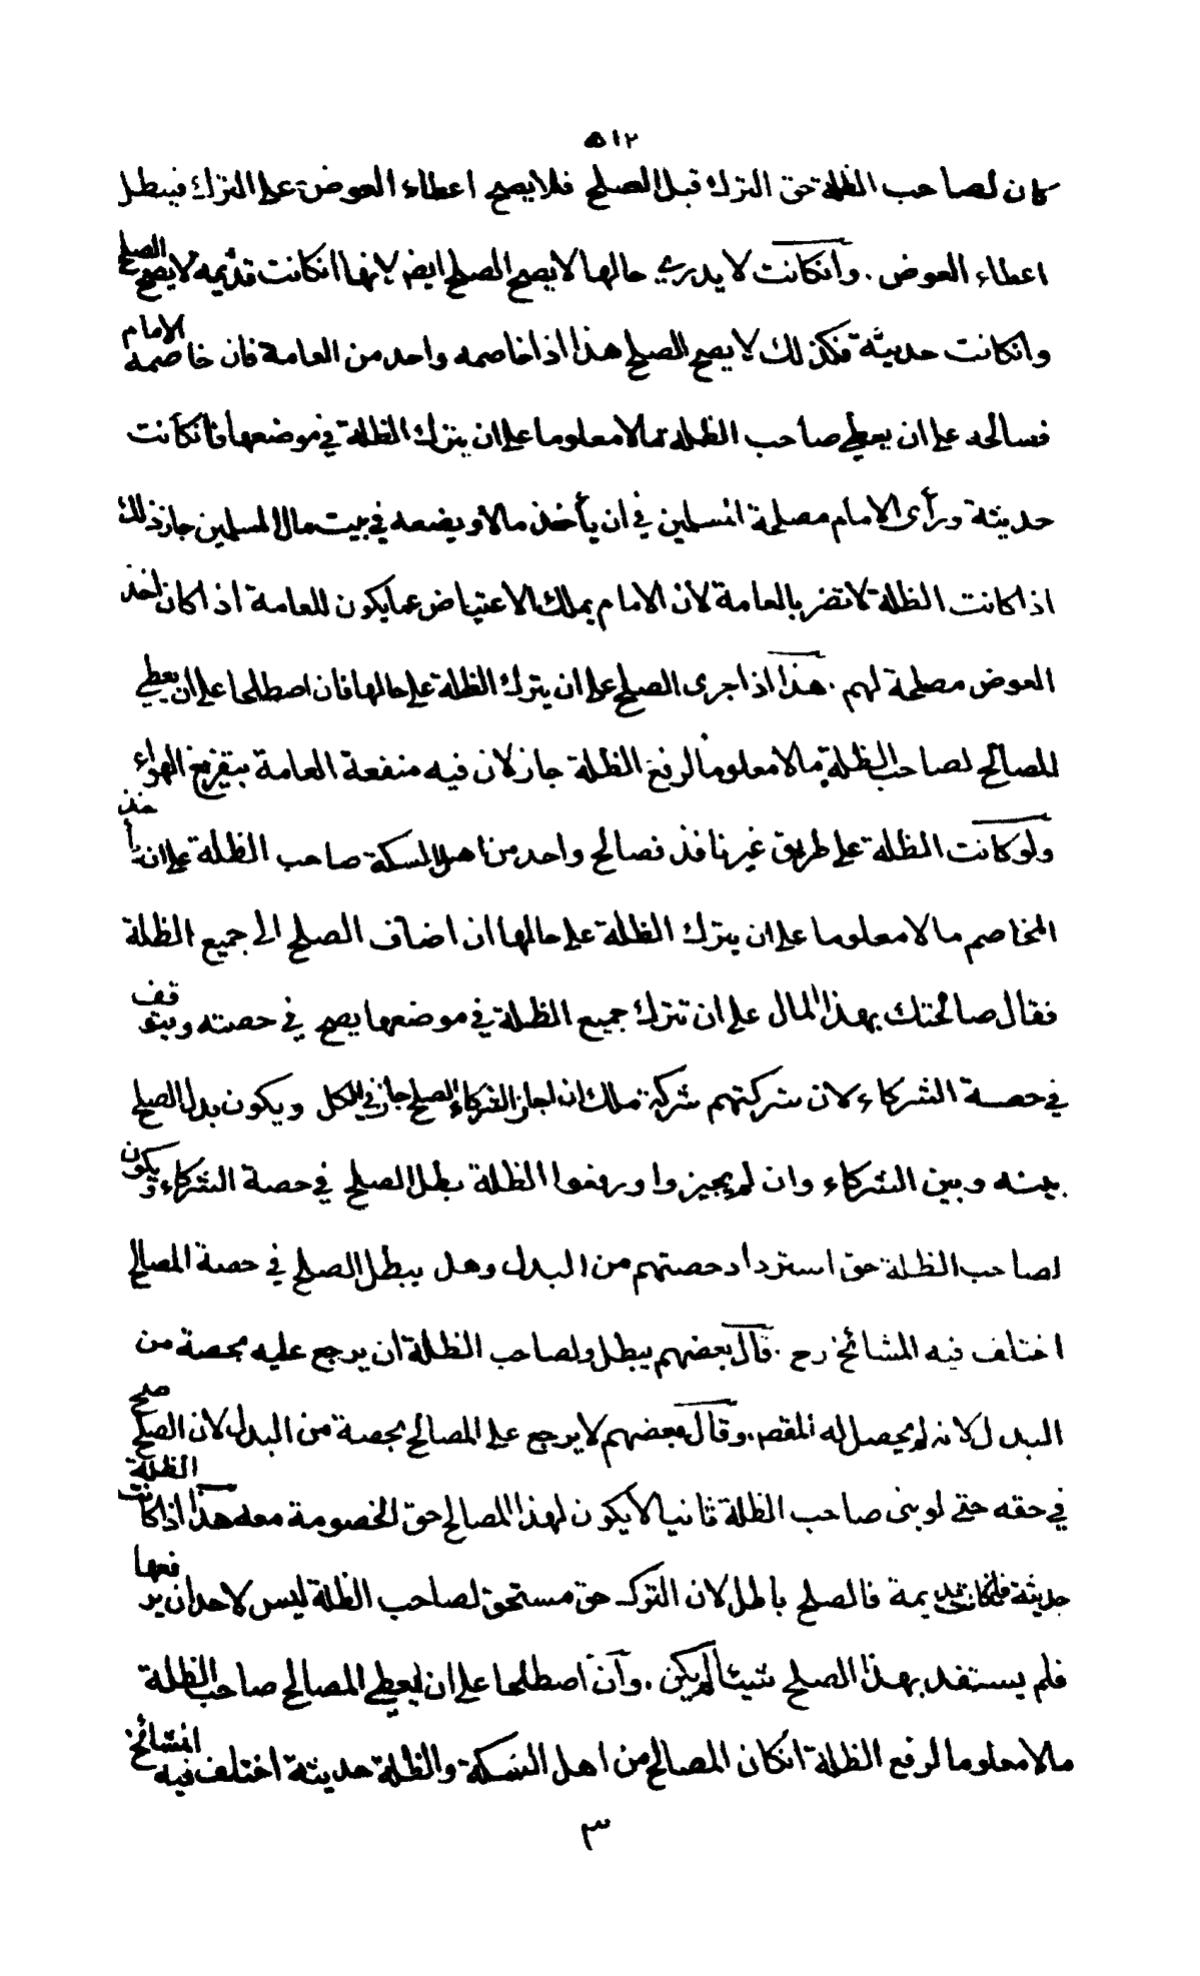 ٥١٢
كان لصاحب الظلة حق الترك قبل الصلح فلا يصح اعطاء العوض على الترك فيبطل
اعطاء العوض . وانكانت لا يدرى حالها لا يصح الصلح ايضا لانها انكانت قديمة لا يصح الصلح
وانكانت حديثة فكذلك لا يصح الصلح هذا اذا خاصمه واحد من العامة فان خاصمه الامام
فسالحه على ان يعطى صاحب الظلة مالا معلوما على ان يترك الظلة في موضعها فانكانت
حديثة ورأى الامام مصلحة المسلمين في ان يأخذ مالا و يضعه في بيت مال المسلمين جاز ذلك
اذا كانت الظلة لا تضر بالعامة لان الامام يملك الاعتياض عما يكون للعامة اذا كان اخذ
العوض مصلحة لهم . هذا اذا جرى الصلح على ان يترك الظلة على حالها فان اصطلحا على ان يعطي
المصالح لصاحب الظلة مالا معلوما لرفع الظلة جاز لان فيه منفعة العامة بتفريغ الهواء
ولو كانت الظلة على طريق غير نافذ فصالح واحد من اهل السكة صاحب الظلة على ان يأخذ
المخاصم مالا معلوما على ان يترك الظلة على حالها ان اضاف الصلح الى جميع الظلة
فقال صالحتك بهذا المال على ان تترك جميع الظلة في موضعها يصح في حصته ويتوقف
في حصة الشركاء لان شركتهم شركة ملك ان اجاز الشركاء الصلح جاز في الكل ويكون بدل الصلح
بينه وبين الشركاء وان لم يجيزوا ورفعوا الظلة بطل الصلح في حصة الشركاء ويكون
لصاحب الظلة حق استرداد حصتهم من البدل وهل يبطل الصلح في حصة المصالح
اختلف فيه المشائخ رح . قال بعضهم يبطل ولصاحب الظلة ان يرجع عليه بحصة من
البدل لانه لم يحصل له المقصـ . وقال بعضهم لا يرجع على المصالح بحصة من البدل لان الصلح صح
في حقه حتى لو بنى صاحب الظلة ثانيا لا يكون لهذا المصالح حق الخصومة معه هذا اذا كانت الظلة
حديثة فانكانت قديمة فالصلح باطل لان الترك حق مستحق لصاحب الظلة ليس لاحد ان يرفعها
فلم يستفد بهذا الصلح شيئا لم يكن . وان اصطلحا على ان يعطي المصالح صاحب الظلة
مالا معلوما لرفع الظلة انكان المصالح من اهل السكة والظلة حديثة اختلف فيه المشائخ
٣